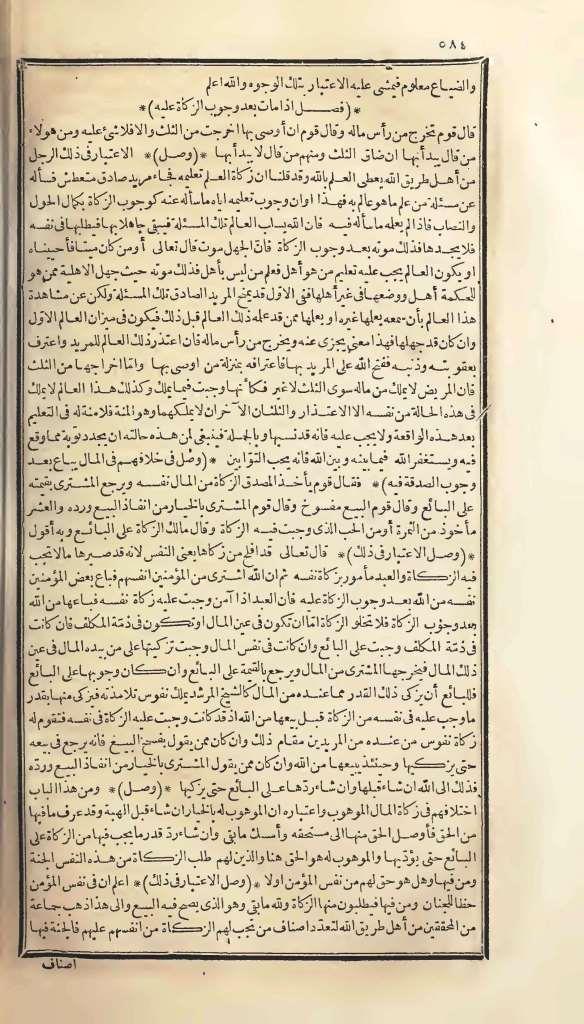 ٥٨٤
والضياع معلوم فيمشى عليه الاعتبار بتلك الوجوه والله اعلم
* (فصل اذا مات بعد وجوب الزكاة عليه) *
قال قوم تخرج من رأس ماله وقال قوم ان أوصى بها اخرجت من الثلث والا فلا شئ عليه ومن هؤلاء
من قال يبدأ بها ان ضاق الثلث ومنهم من قال لا يبدأ بها * (وصل) * الاعتبار فى ذلك الرجل
من أهل طريق الله يعطى العلم بالله وقد قلنا ان زكاة العلم تعليمه فجاء مريد صادق متعطش فسأله
عن مسئلة من علم ما هو عالم به فهذا اوان وجوب تعليمه اياه ما سأله عنه كوجوب الزكاة بكمال الحول
والنصاب فاذا لم يعلمه ما سأله فيه فان الله يسلب العالم تلك المسئلة فيبقى جاهلا بها فيطلبها فى نفسه
فلا يجدها فذلك موته بعد وجوب الزكاة فان الجهل موت قال تعالى أومن كان ميتا فأحييناه
او يكون العالم يجب عليه تعليم من هو أهل فعلم من ليس بأهل فذلك موته حيث جهل الاهلية ممن هو
للحكمة أهل ووضعها فى غير أهلها ففى الاول قد يمنح المريد الصادق تلك المسئلة ولكن عن مشاهدة
هذا العالم بأن سمعه يعلمها غيره او يعلمها ممن قد علمه ذلك العالم قبل ذلك فيكون فى ميزان العالم الاول
وان كان قد جهلها فهذا معنى يجزى عنه ويخرج من رأس ماله فان اعتذر ذلك العالم للمريد واعترف
بعقوبته وذنبه ففتح الله على المريد بها فاعترافه بمنزلة من اوصى بها واما اخراجها من الثلث
فان المريض لا يملك من ماله سوى الثلث لا غير فكأنها وجبت فيما يملك وكذلك هذا العالم لا يملك
فى هذه الحالة من نفسه الا الاعتذار والثلثان الآخران لا يملكهما وهو المنة فلا منة له فى التعليم
بعد هذه الواقعة ولا يجب عليه فانه قد نسيها وبالجملة فينبغى لمن هذه حالته ان يجدد توبة مما وقع
فيه ويستغفر الله فيما بينه وبين الله فانه يحب التوابين * (وصل فى خلافهم فى المال يباع بعد
وجوب الصدقة فيه) * فقال قوم يأخذ المصدق الزكاة من المال نفسه ويرجع المشترى بقيمته
على البائع وقال قوم البيع مفسوخ وقال قوم المشترى بالخيار من انفاذ البيع ورده والعشر
مأخوذ من الثمرة أو من الحب الذى وجبت فيه الزكاة وقال مالك الزكاة على البائع وبه أقول
* (وصل الاعتبار فى ذلك) * قال تعالى قد افلح من زكاها يعنى النفس لانه قد صيرها مالا تجب
فيه الزكاة والعبد مأمور بزكاة نفسه ثم ان الله اشترى من المؤمنين انفسهم فباع بعض المؤمنين
نفسه من الله بعد وجوب الزكاة عليه فان العبد اذا آمن وجبت عليه زكاة نفسه فباعها من الله
بعد وجوب الزكاة فلا تخلو الزكاة اما ان تكون فى عين المال او تكون فى ذمة المكلف فان كانت
فى ذمة المكلف وجبت على البائع وان كانت فى نفس المال وجبت تزكيتها على من بيده المال فى عين
ذلك المال فيخرجها المشترى من المال ويرجع بالقيمة على البائع وان كان وجوبها على البائع
فللبائع أن يزكى ذلك القدر مما عنده من المال كالشيخ المرشد يملك نفوس تلامذته فيزكى منها بقدر
ما وجب عليه فى نفسه من الزكاة قبل بيعها من الله اذ قد كانت وجبت عليه الزكاة فى نفسه فتقوم له
زكاة نفوس من عنده من المريدين مقام ذلك وان كان ممن يقول بفسخ البيع فانه يرجع فى بيعه
حتى يزكيها وحينئذ يبيعها من الله وان كان ممن يقول المشترى بالخيار من انفاذ البيع ورده
فذلك الى الله ان شاء قبلها وان شاء ردها على البائع حتى يزكيها * (وصل) * ومن هذا الباب
اختلافهم فى زكاة المال الموهوب واعتباره ان الموهوب له بالخيار ان شاء قبل الهبة وقد عرف ما فيها
من الحق فأوصل الحق منها الى مستحقه وأمسك ما بقى وان شاء رد قدر ما يجب فيها من الزكاة على
البائع حتى يؤديها والموهوب له هو الحق هنا والذين لهم طلب الزكاة من هذه النفس الجنة
ومن فيها وهل هو حق لهم من نفس المؤمن اولا * (وصل الاعتبار فى ذلك) * اعلم ان فى نفس المؤمن
حظا للجنان ومن فيها فيطلبون منها الزكاة ولله ما بقى وهو الذى يصح فيه البيع والى هذا ذهب جماعة
من المحققين من أهل طريق الله لتعدد اصناف من يجب لهم الزكاة من انفسهم عليهم فالجنة فيها
اصناف